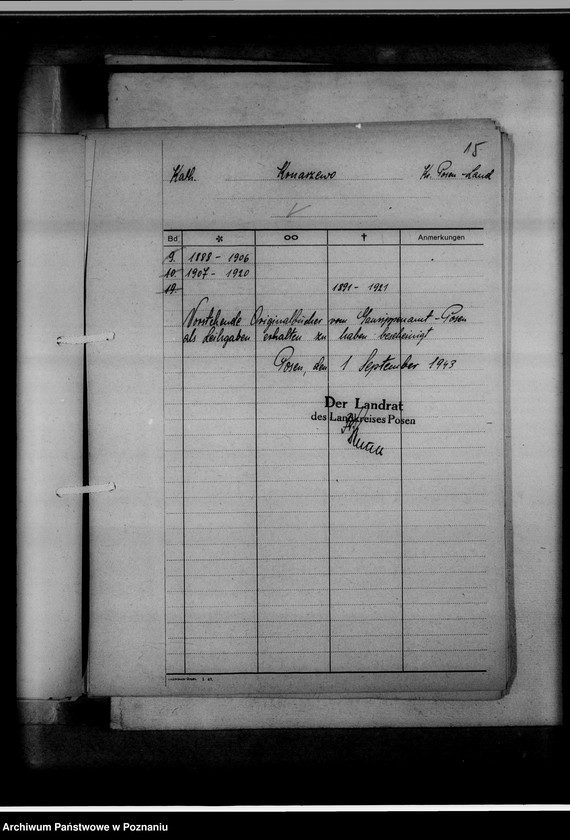 15
Kath. Konarzewo Kr. Posen-Land
Bd. * ∞ † Anmerkungen
9. 1888 - 1906
10. 1907 - 1920
19. 1891 - 1921
Vorstehende Originalbücher vom Gausippenamt-Posen
als Leihgaben erhalten zu haben bescheinigt
Posen, den 1 September 1943
Der Landrat
des Landkreises Posen
Archiwum Państwowe w Poznaniu